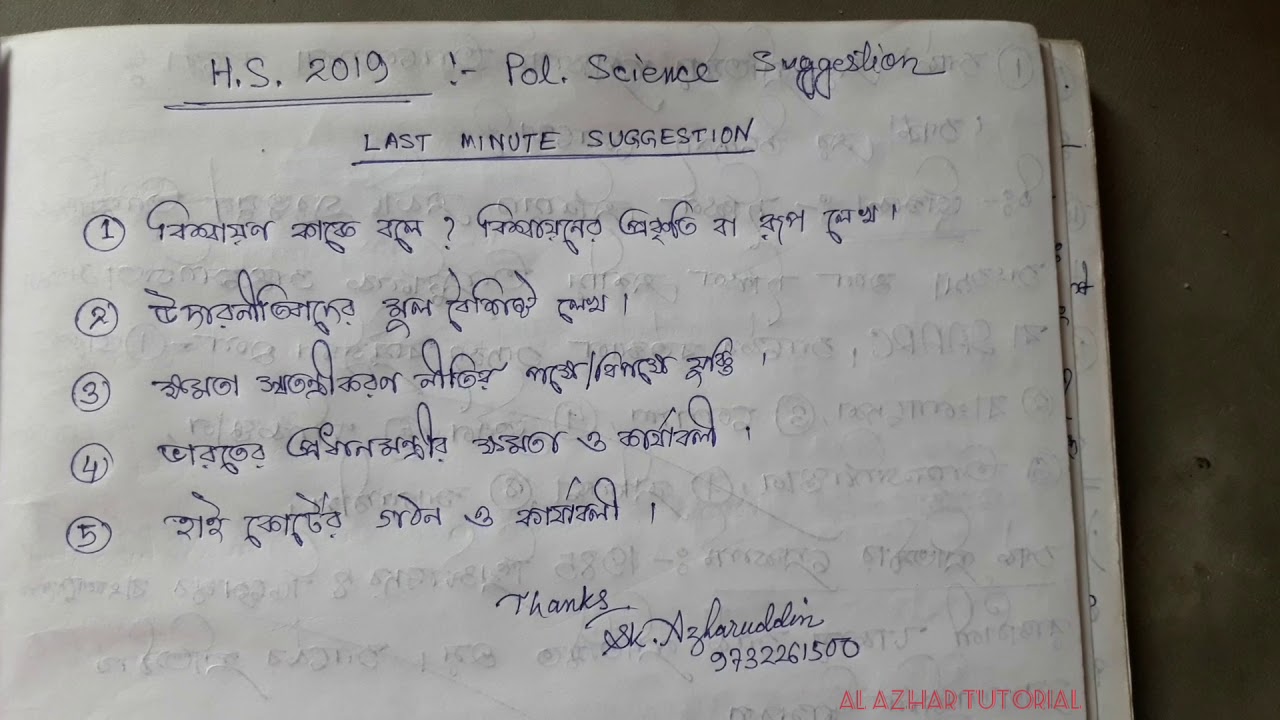 H.S. 2019 :- Pol. Science Suggestion
LAST MINUTE SUGGESTION
① বিশ্বায়ণ কাকে বলে ? বিশ্বায়নের প্রকৃতি বা রূপ লেখ।
② উদারনীতিবাদের মূল বৈশিষ্ট্য লেখ।
③ ক্ষমতা স্বতন্ত্রীকরণ নীতির পক্ষে/বিপক্ষে যুক্তি।
④ ভারতের প্রধানমন্ত্রীর ক্ষমতা ও কার্যাবলী।
⑤ হাই কোর্টের গঠন ও কার্যাবলী।
Thanks
SK. Azharuddin
9732261500
AL AZHAR TUTORIAL